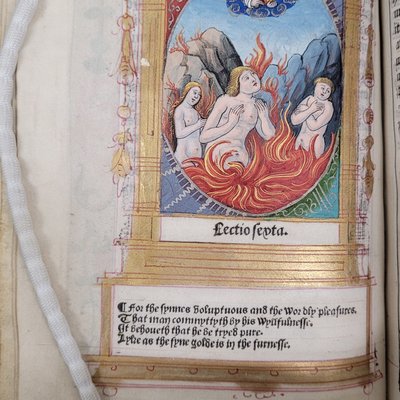 Lectio septa.
¶ For the synnes Voluptuous and the Worldly pleasures.
That man commyttyth by his Wyllfulnesse.
It behoueth that he be tryed pure.
Lyke as the fyne golde is in the furnesse.